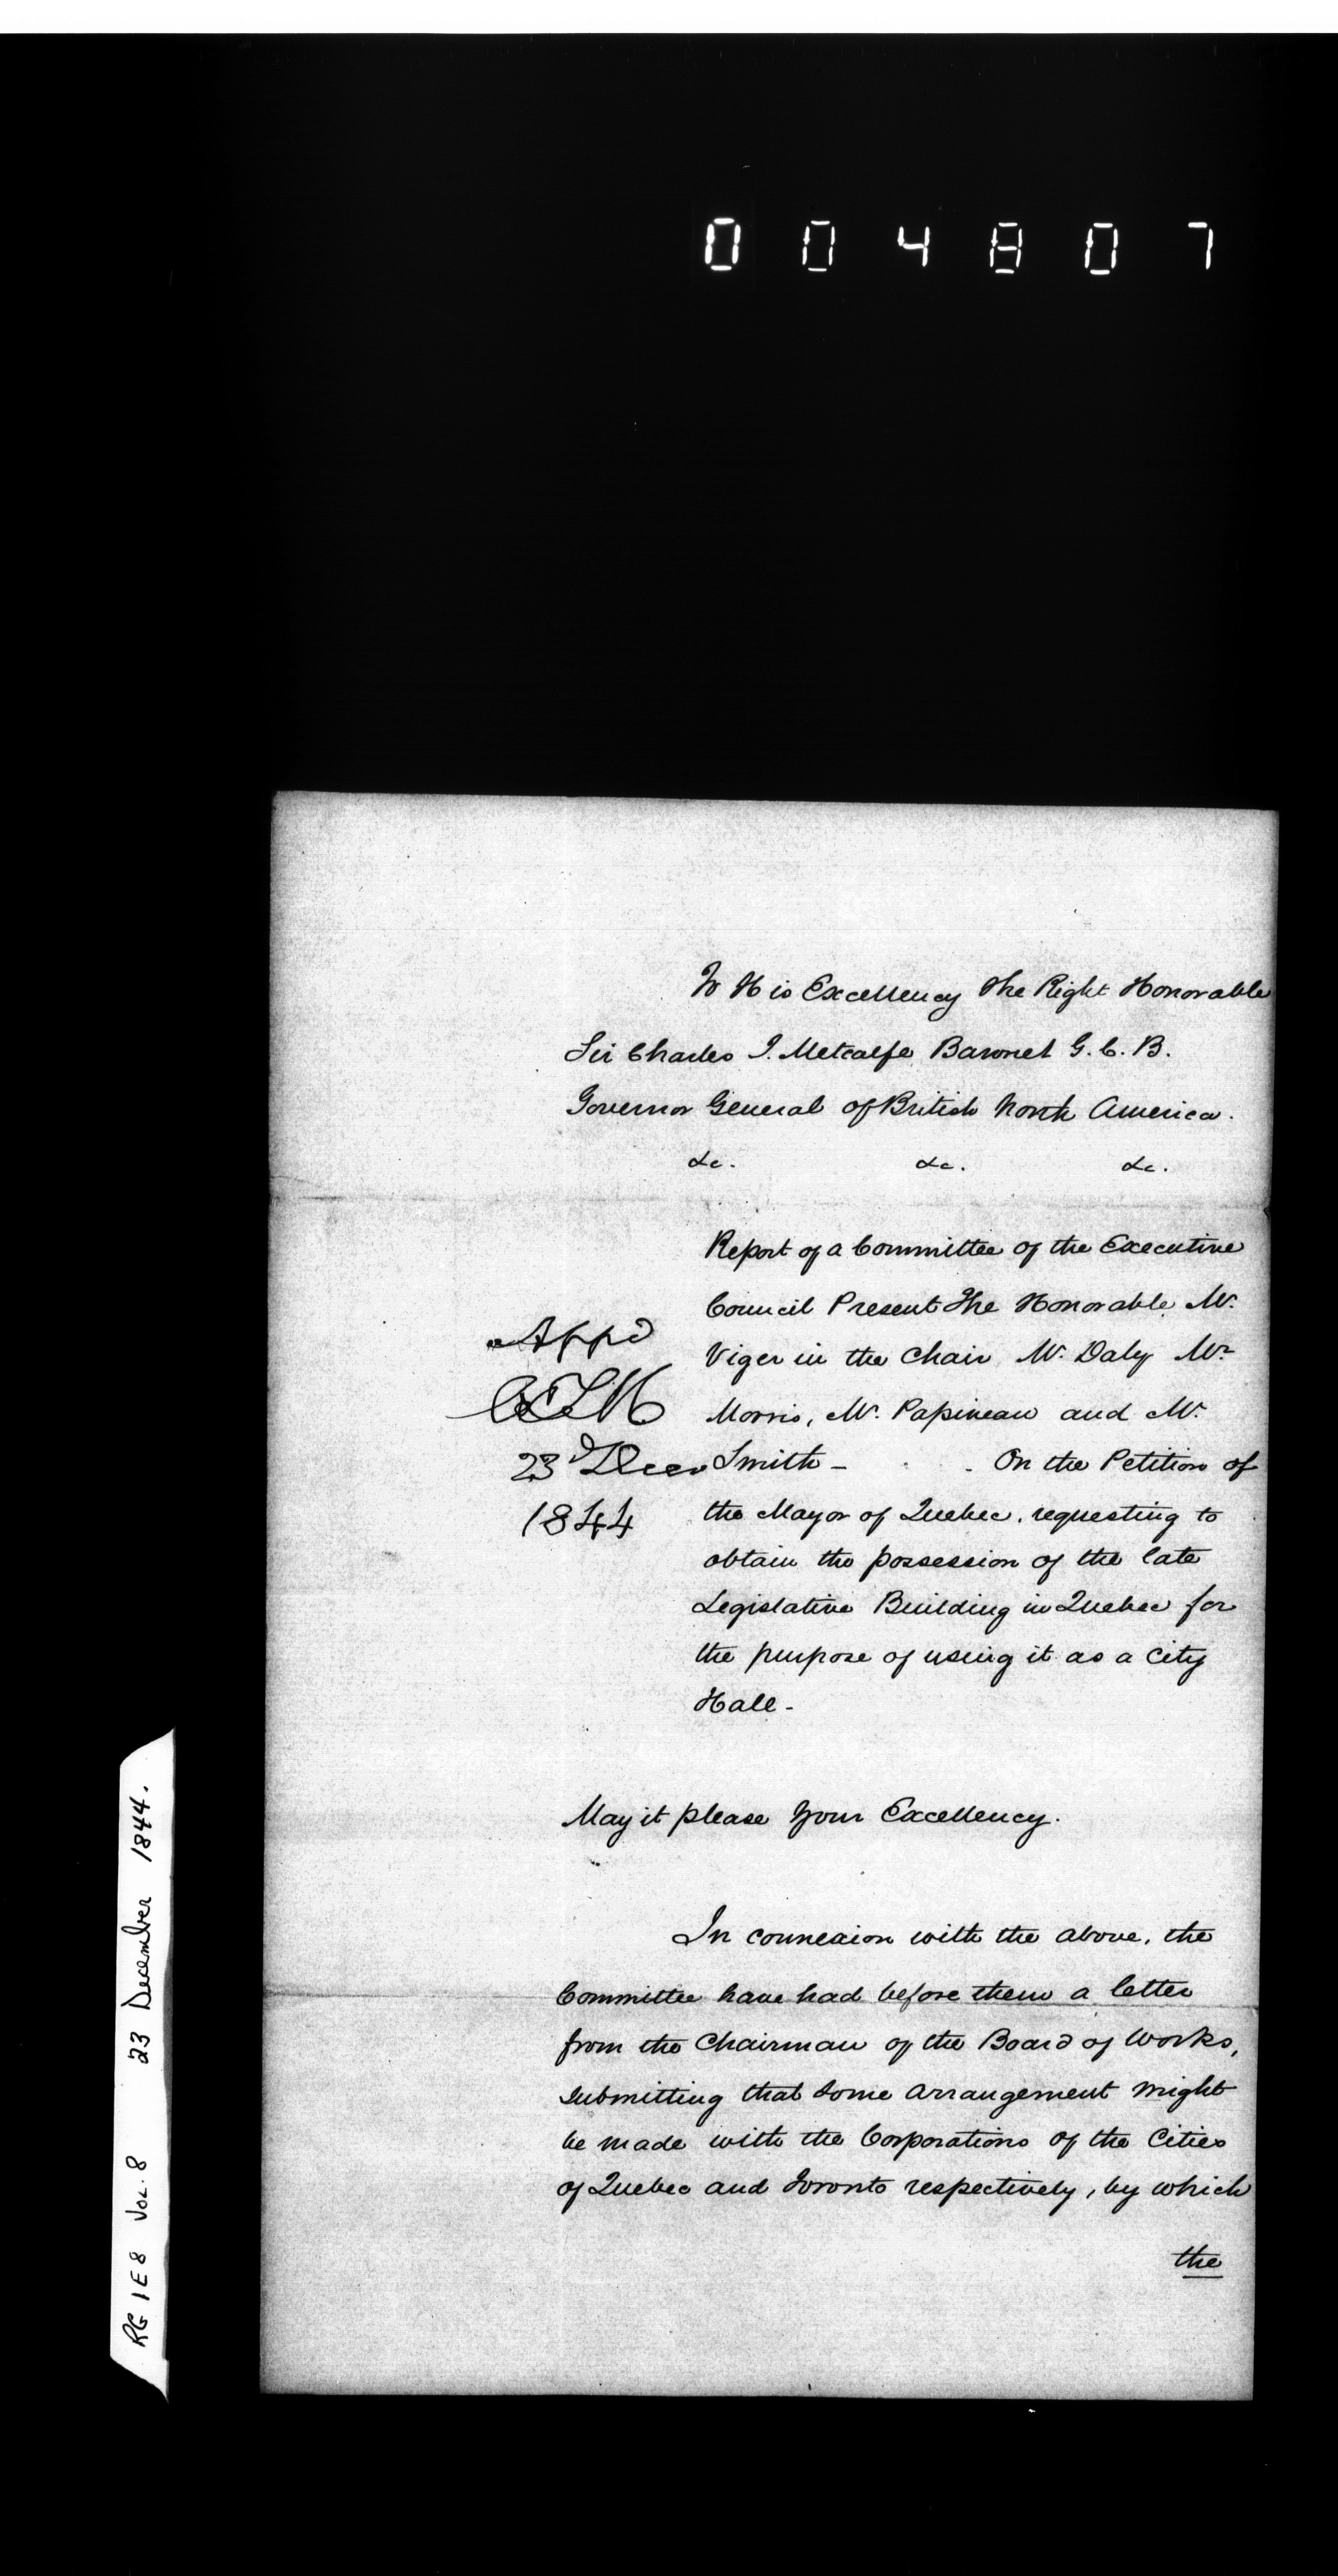 004807
To His Excellency The Right Honorable
Sir Charles T. Metcalfe Baronet G. C. B.
Governor General of British North America.
&c. &c. &c.
Report of a Committee of the Executive
Council Present The Honorable Mr.
Viger in the Chair Mr. Daly Mr.
Morris, Mr. Papineau and Mr.
Smith - - On the Petition of
the Mayor of Quebec, requesting to
obtain the possession of the late
Legislative Building in Quebec for
the purpose of using it as a City
Hall -
Appd
CTM
23d Decr
1844
May it please Your Excellency.
In connexion with the above, the
Committee have had before them a letter
from the Chairman of the Board of Works,
submitting that some arrangement might
be made with the Corporations of the Cities
of Quebec and Toronto respectively, by which
the
RG 1 E 8 Vol. 8 23 December 1844.